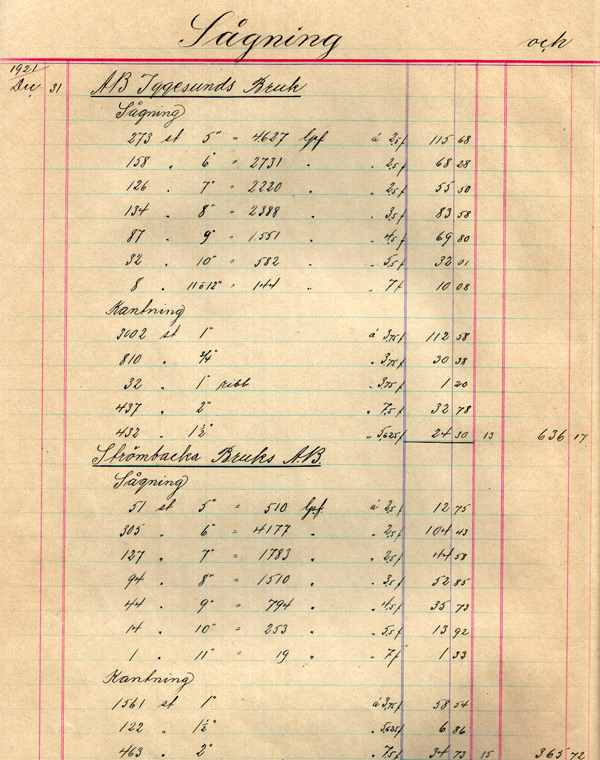 Sågning och
1921
Dec 31 AB Iggesunds Bruk
Sågning
273 st 5" = 4627 lpf á 2,5 f 115 68
158 . 6" = 2731 . . 2,5 f 68 28
126 . 7" = 2220 . 2,5 f 55 50
134 . 8" = 2388 . . 3,5 f 83 58
87 . 9" = 1551 . 4,5 f 69 80
32 . 10" = 582 . . 5,5 f 32 01
8 . 11 à 12" = 144 " . 7 f 10 08
Kantning
3002 st 1" á 3,75 f 112 58
810 . 3/4" . 3,75 f 30 38
32 . 1" ribb . 3,75 f 1 20
437 . 2" . 7,5 f 32 78
432 . 1 1/2" . 5,625 f 24 30 13 636 17
Strömbacka Bruks A.B.
Sågning
51 st 5" = 510 lpf á 2,5 f 12 75
305 . 6" = 4177 . . 2,5 f 104 43
127 . 7" = 1783 . . 2,5 f 44 58
94 . 8" = 1510 . . 3,5 f 52 85
44 . 9" = 794 . . 4,5 f 35 73
14 . 10" = 253 . . 5,5 f 13 92
1 . 11" = 19 " . 7 f 1 33
Kantning
1561 st 1" á 3,75 f 58 54
122 . 1 1/2" . 5,625 f 6 86
463 . 2" . 7,5 f 34 73 15 365 72